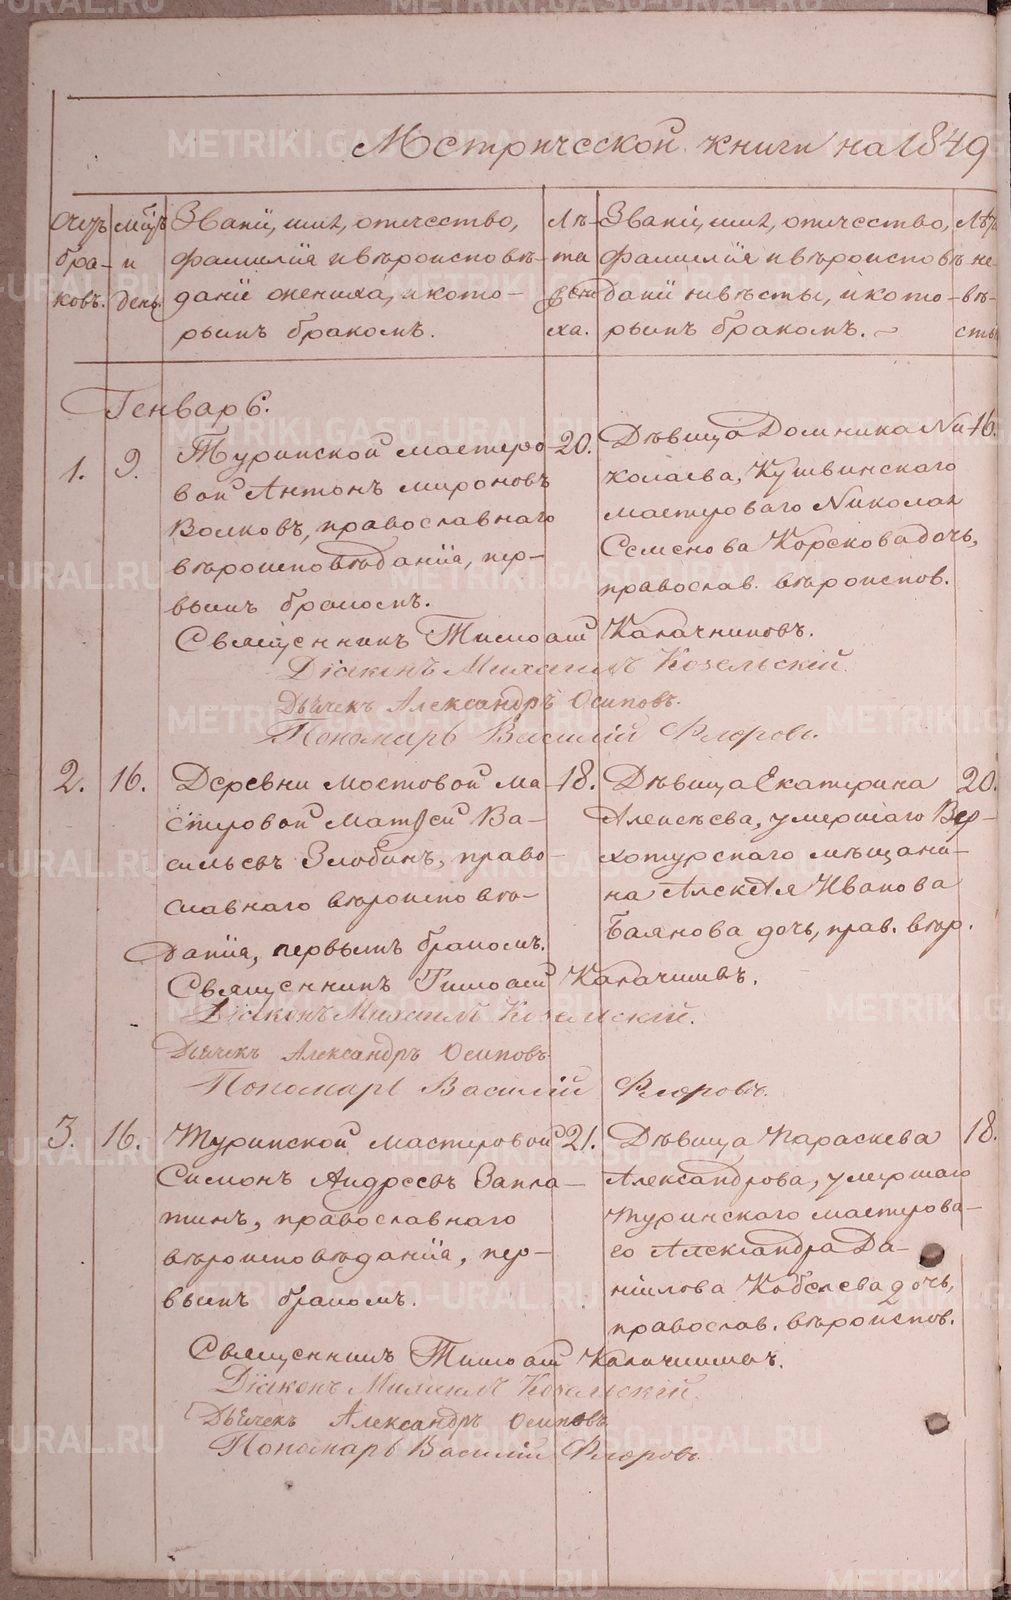 Метрической книги на 1849
Счетъ браковъ.
Мѣсяцъ и день.
Званіе, имя, отчество,
фамилія и вѣроисповѣ-
даніе жениха, и кото-
рымъ бракомъ.
Лѣ-
та
жени
ха.
Званіе, имя, отчество,
фамилія и вѣроисповѣ-
даніе невѣсты, и кото-
рымъ бракомъ.
Лѣта
не-
вѣ-
сты
Генварь.
1. 9. Туринской мастеро-
вой Антонъ Мироновъ
Волковъ, православнаго
вѣроисповѣданія, пер-
вымъ бракомъ.
20.
Дѣвица Домника Ни-
колаева, Кушвинскаго
мастероваго Николая
Семенова Корскова дочь,
православ. вѣроиспов.
16.
Священникъ Тимофей Калачниковъ.
Діаконъ Михаилъ Козельскій.
Дьячекъ Александръ Осиповъ.
Пономарь Василій Флеровъ.
2. 16. Деревни Мостовой ма-
стеровой Матвей Ва-
сильевъ Злобинъ, право-
славнаго вѣроисповѣ-
данія, первымъ бракомъ.
18.
Дѣвица Екатерина
Алексѣева, умершаго Вер-
хотурскаго мѣщани-
на Алексѣя Иванова
Баянова дочь, прав. вѣр.
20.
Священникъ Тимофей Калачниковъ.
Діаконъ Михаилъ Козельскій.
Дьячекъ Александръ Осиповъ
Пономарь Василій Флеровъ.
3. 16. Туринской мастеровой
Симонъ Андреевъ Запла-
тинъ, православнаго
вѣроисповѣданія, пер-
вымъ бракомъ.
21.
Дѣвица Параскева
Александрова, умершаго
Туринскаго мастерова-
го Александра Да-
нилова Кобелева дочь,
православ. вѣроиспов.
18.
Священникъ Тимофей Калачниковъ.
Діаконъ Михаилъ Козельскій
Дьячекъ Александръ Осиповъ
Пономарь Василій Флеровъ
METRIKI.GASO-URAL.RU